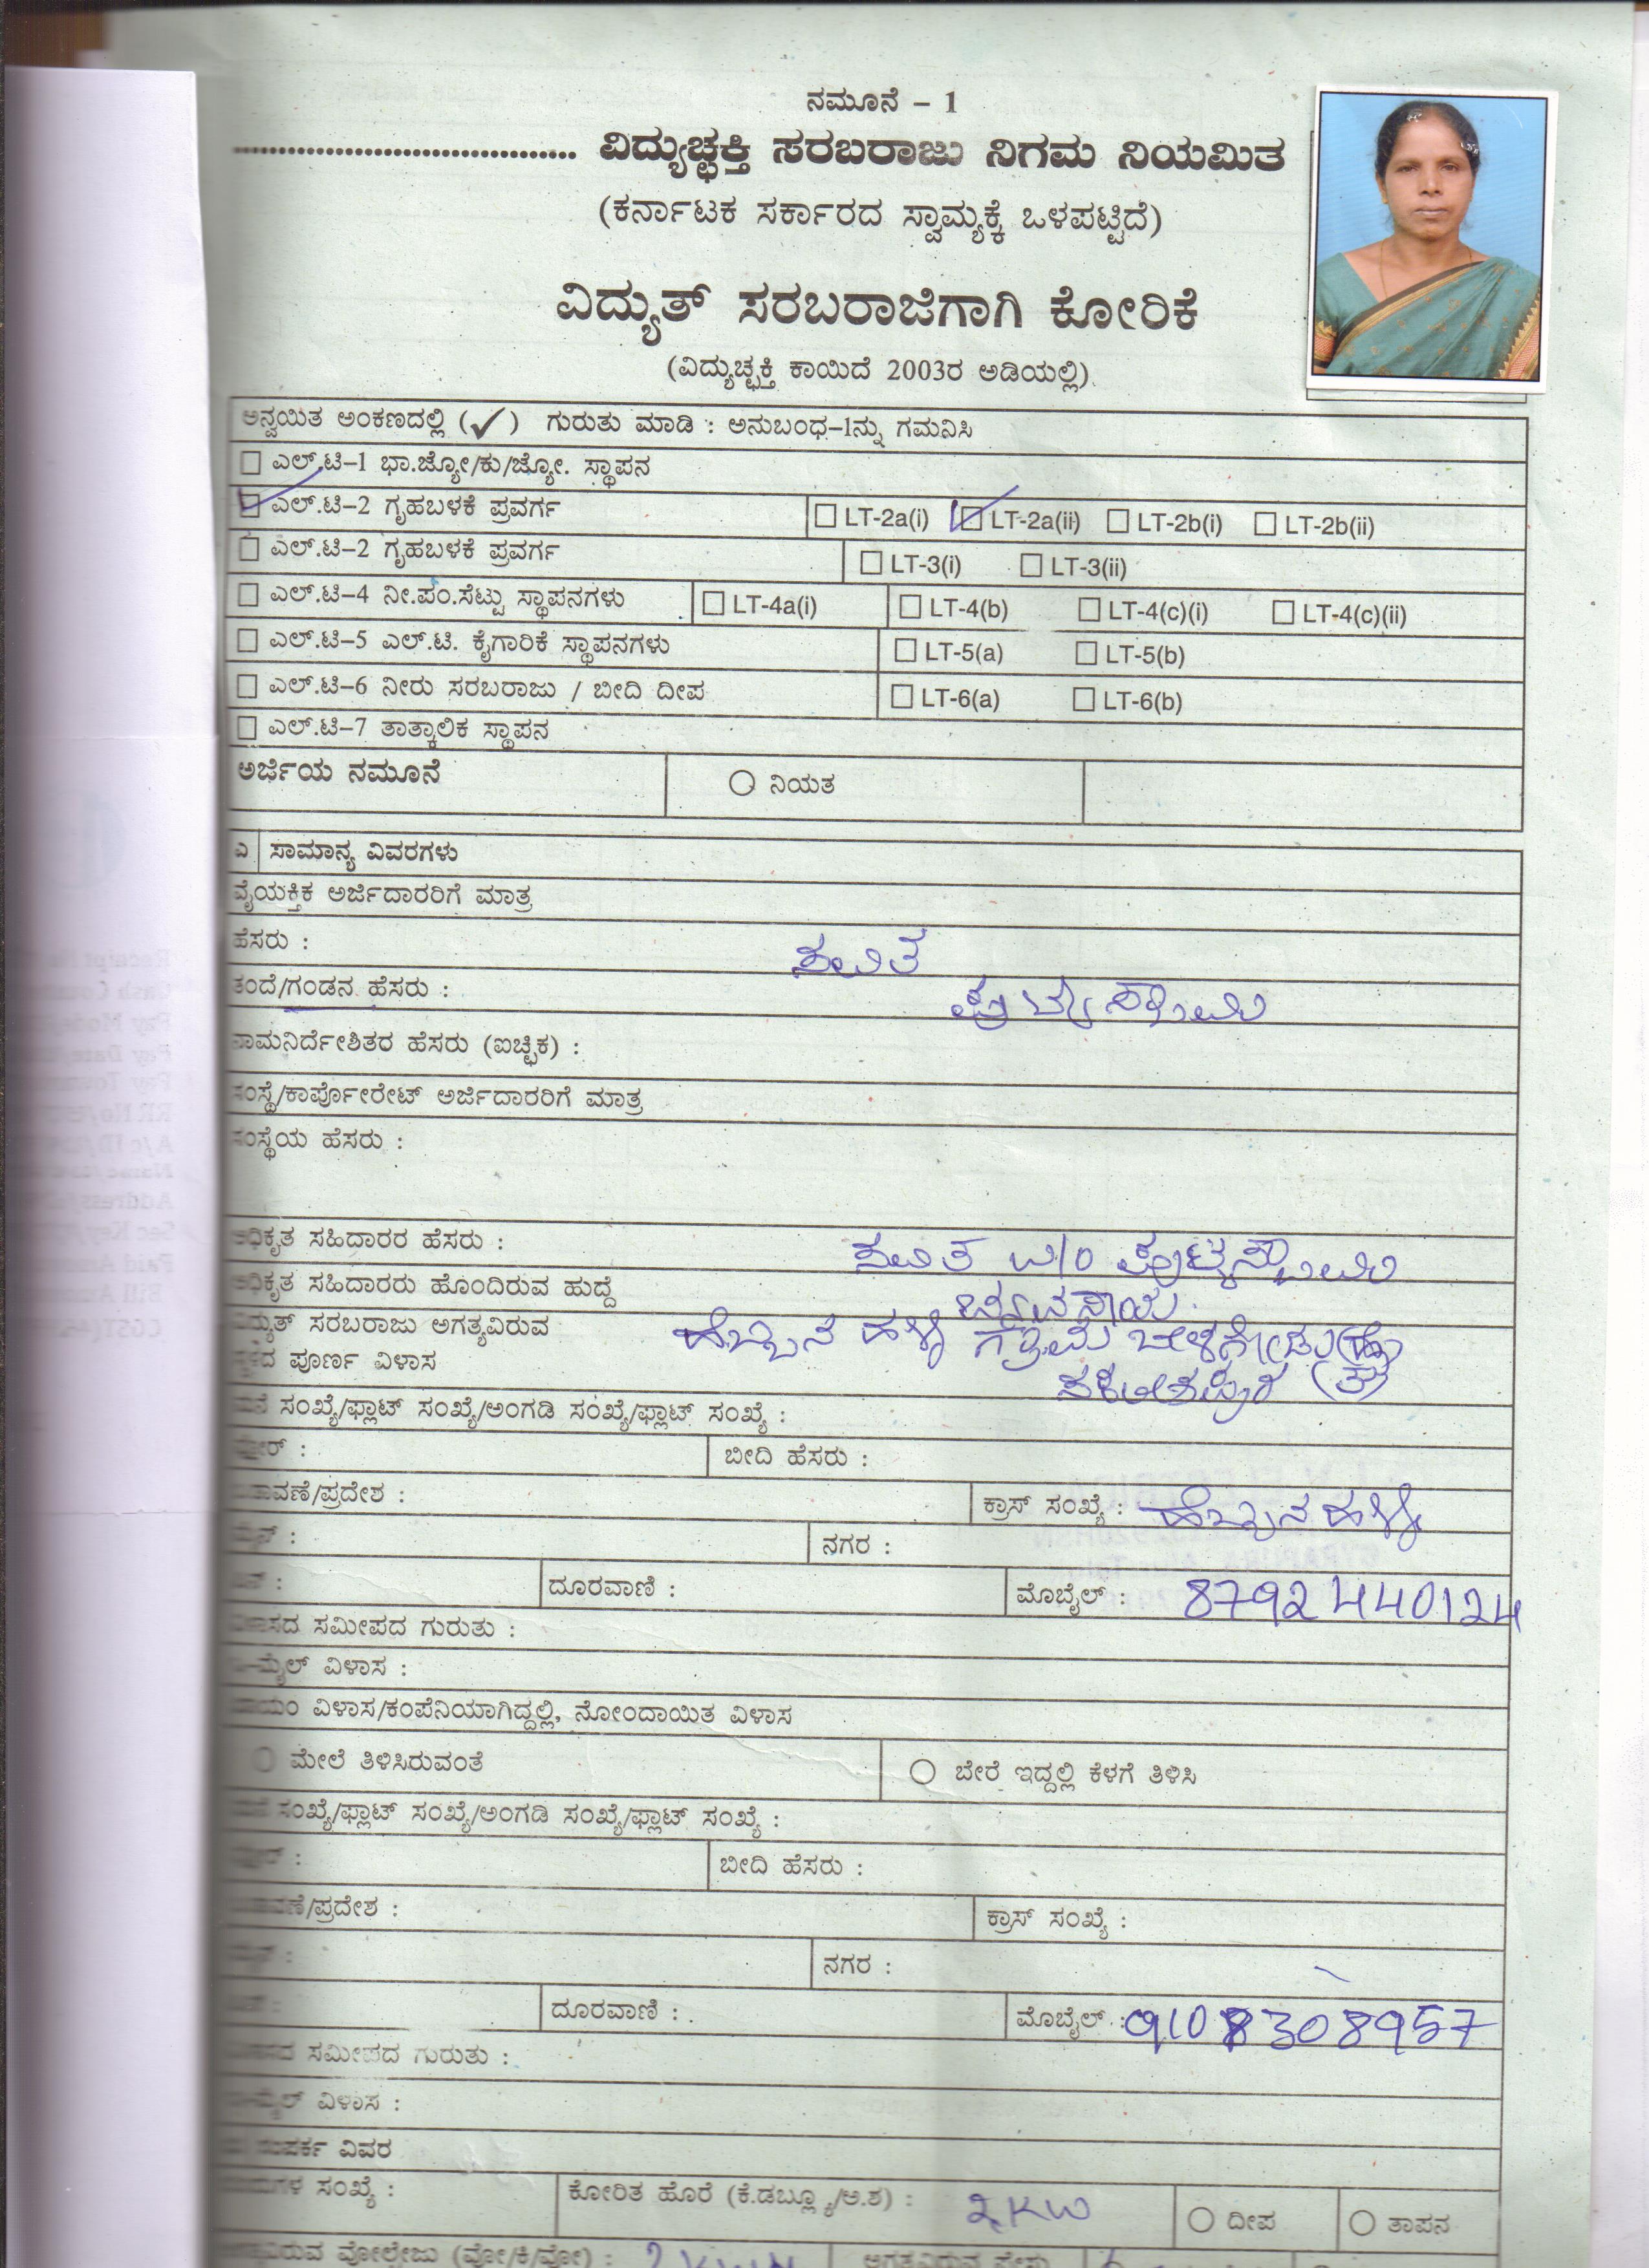 ನಮೂನೆ – 1
.................................... ವಿದ್ಯುಚ್ಛಕ್ತಿ ಸರಬರಾಜು ನಿಗಮ ನಿಯಮಿತ
(ಕರ್ನಾಟಕ ಸರ್ಕಾರದ ಸ್ವಾಮ್ಯಕ್ಕೆ ಒಳಪಟ್ಟಿದೆ)
ವಿದ್ಯುತ್ ಸರಬರಾಜಿಗಾಗಿ ಕೋರಿಕೆ
(ವಿದ್ಯುಚ್ಛಕ್ತಿ ಕಾಯಿದೆ 2003ರ ಅಡಿಯಲ್ಲಿ)
ಅನ್ವಯಿತ ಅಂಕಣದಲ್ಲಿ (✓) ಗುರುತು ಮಾಡಿ : ಅನುಬಂಧ–1ನ್ನು ಗಮನಿಸಿ
ಎಲ್.ಟಿ–1 ಭಾ.ಜ್ಯೋ/ಕು/ಜ್ಯೋ. ಸ್ಥಾಪನ
ಎಲ್.ಟಿ–2 ಗೃಹಬಳಕೆ ಪ್ರವರ್ಗ LT-2a(i) LT-2a(ii) LT-2b(i) LT-2b(ii)
ಎಲ್.ಟಿ–2 ಗೃಹಬಳಕೆ ಪ್ರವರ್ಗ LT-3(i) LT-3(ii)
ಎಲ್.ಟಿ–4 ನೀ.ಪಂ.ಸೆಟ್ಟು ಸ್ಥಾಪನಗಳು LT-4a(i) LT-4(b) LT-4(c)(i) LT-4(c)(ii)
ಎಲ್.ಟಿ–5 ಎಲ್.ಟಿ. ಕೈಗಾರಿಕೆ ಸ್ಥಾಪನಗಳು LT-5(a) LT-5(b)
ಎಲ್.ಟಿ–6 ನೀರು ಸರಬರಾಜು / ಬೀದಿ ದೀಪ LT-6(a) LT-6(b)
ಎಲ್.ಟಿ–7 ತಾತ್ಕಾಲಿಕ ಸ್ಥಾಪನ
ಅರ್ಜಿಯ ನಮೂನೆ ನಿಯತ
ಎ ಸಾಮಾನ್ಯ ವಿವರಗಳು
ವೈಯಕ್ತಿಕ ಅರ್ಜಿದಾರರಿಗೆ ಮಾತ್ರ
ಹೆಸರು :
ತಂದೆ/ಗಂಡನ ಹೆಸರು :
ನಾಮನಿರ್ದೇಶಿತರ ಹೆಸರು (ಐಚ್ಛಿಕ) :
ಸಂಸ್ಥೆ/ಕಾರ್ಪೋರೇಟ್ ಅರ್ಜಿದಾರರಿಗೆ ಮಾತ್ರ
ಸಂಸ್ಥೆಯ ಹೆಸರು :
ಅಧಿಕೃತ ಸಹಿದಾರರ ಹೆಸರು : W/O
ಅಧಿಕೃತ ಸಹಿದಾರರು ಹೊಂದಿರುವ ಹುದ್ದೆ ವ್ಯವಸಾಯ
ವಿದ್ಯುತ್ ಸರಬರಾಜು ಅಗತ್ಯವಿರುವ ಹೆಬ್ಬನಹಳ್ಳಿ ಗ್ರಾಮ ಬೆಳಗೋಡು (ಹೋ)
ಸ್ಥಳದ ಪೂರ್ಣ ವಿಳಾಸ ಸಕಲೇಶಪುರ (ತಾ)
ಮನೆ ಸಂಖ್ಯೆ/ಫ್ಲಾಟ್ ಸಂಖ್ಯೆ/ಅಂಗಡಿ ಸಂಖ್ಯೆ/ಫ್ಲಾಟ್ ಸಂಖ್ಯೆ :
ಬೀದಿ ಹೆಸರು :
ಬಡಾವಣೆ/ಪ್ರದೇಶ : ಕ್ರಾಸ್ ಸಂಖ್ಯೆ : ಹೆಬ್ಬನಹಳ್ಳಿ
ನಗರ :
ದೂರವಾಣಿ : ಮೊಬೈಲ್ : 8792440124
ವಿಳಾಸದ ಸಮೀಪದ ಗುರುತು :
ಇ–ಮೈಲ್ ವಿಳಾಸ :
ಖಾಯಂ ವಿಳಾಸ/ಕಂಪೆನಿಯಾಗಿದ್ದಲ್ಲಿ, ನೋಂದಾಯಿತ ವಿಳಾಸ
ಮೇಲೆ ತಿಳಿಸಿರುವಂತೆ ಬೇರೆ ಇದ್ದಲ್ಲಿ ಕೆಳಗೆ ತಿಳಿಸಿ
ಮನೆ ಸಂಖ್ಯೆ/ಫ್ಲಾಟ್ ಸಂಖ್ಯೆ/ಅಂಗಡಿ ಸಂಖ್ಯೆ/ಫ್ಲಾಟ್ ಸಂಖ್ಯೆ :
ಬೀದಿ ಹೆಸರು :
ಬಡಾವಣೆ/ಪ್ರದೇಶ : ಕ್ರಾಸ್ ಸಂಖ್ಯೆ :
ನಗರ :
ದೂರವಾಣಿ : ಮೊಬೈಲ್ : 9108308957
ವಿಳಾಸದ ಸಮೀಪದ ಗುರುತು :
ಇ–ಮೈಲ್ ವಿಳಾಸ :
ಸಂಪರ್ಕ ವಿವರ
ಸಂಖ್ಯೆ : ಕೋರಿತ ಹೊರೆ (ಕೆ.ಡಬ್ಲ್ಯೂ/ಅ.ಶ) : 2KW ದೀಪ ತಾಪನ